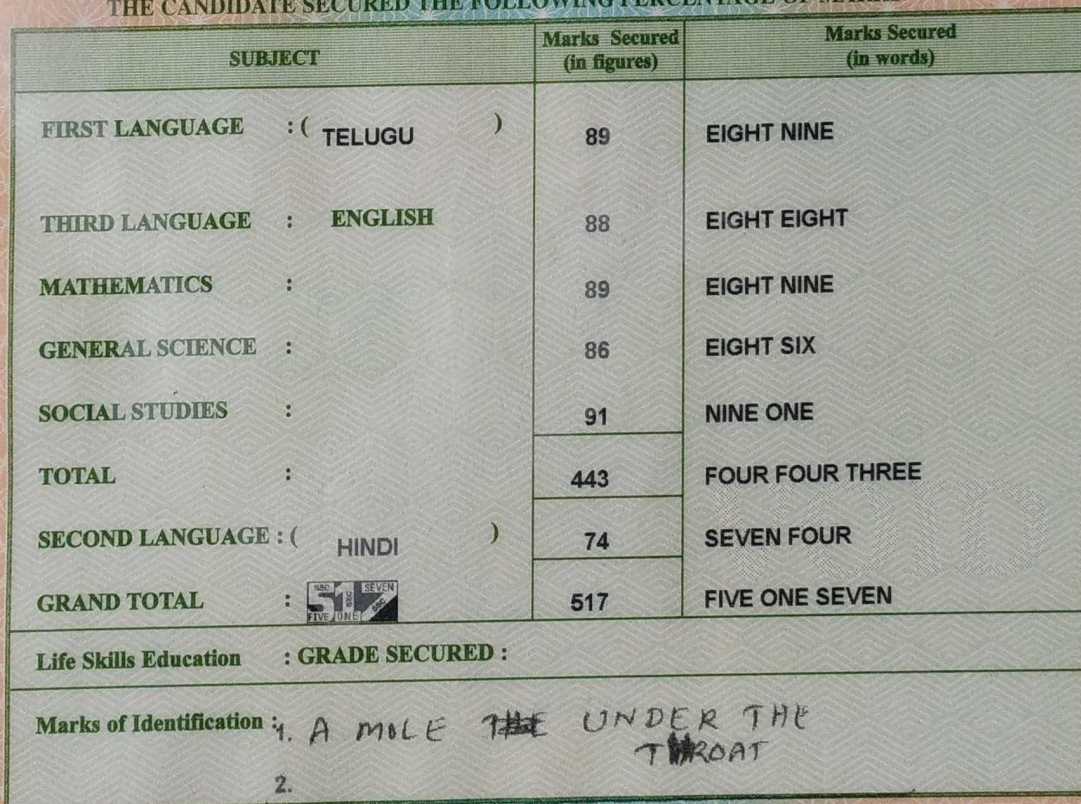 THE CANDIDATE SECURED THE FOLLOWING PERCENTAGE OF MARKS
SUBJECT Marks Secured (in figures) Marks Secured (in words)
FIRST LANGUAGE : ( TELUGU ) 89 EIGHT NINE
THIRD LANGUAGE : ENGLISH 88 EIGHT EIGHT
MATHEMATICS : 89 EIGHT NINE
GENERAL SCIENCE : 86 EIGHT SIX
SOCIAL STUDIES : 91 NINE ONE
TOTAL : 443 FOUR FOUR THREE
SECOND LANGUAGE : ( HINDI ) 74 SEVEN FOUR
GRAND TOTAL : 517 FIVE ONE SEVEN
SSC SEVEN
517 SSC SSC
FIVE ONE
Life Skills Education : GRADE SECURED :
Marks of Identification : 1. A MOLE UNDER THE
THROAT
2.